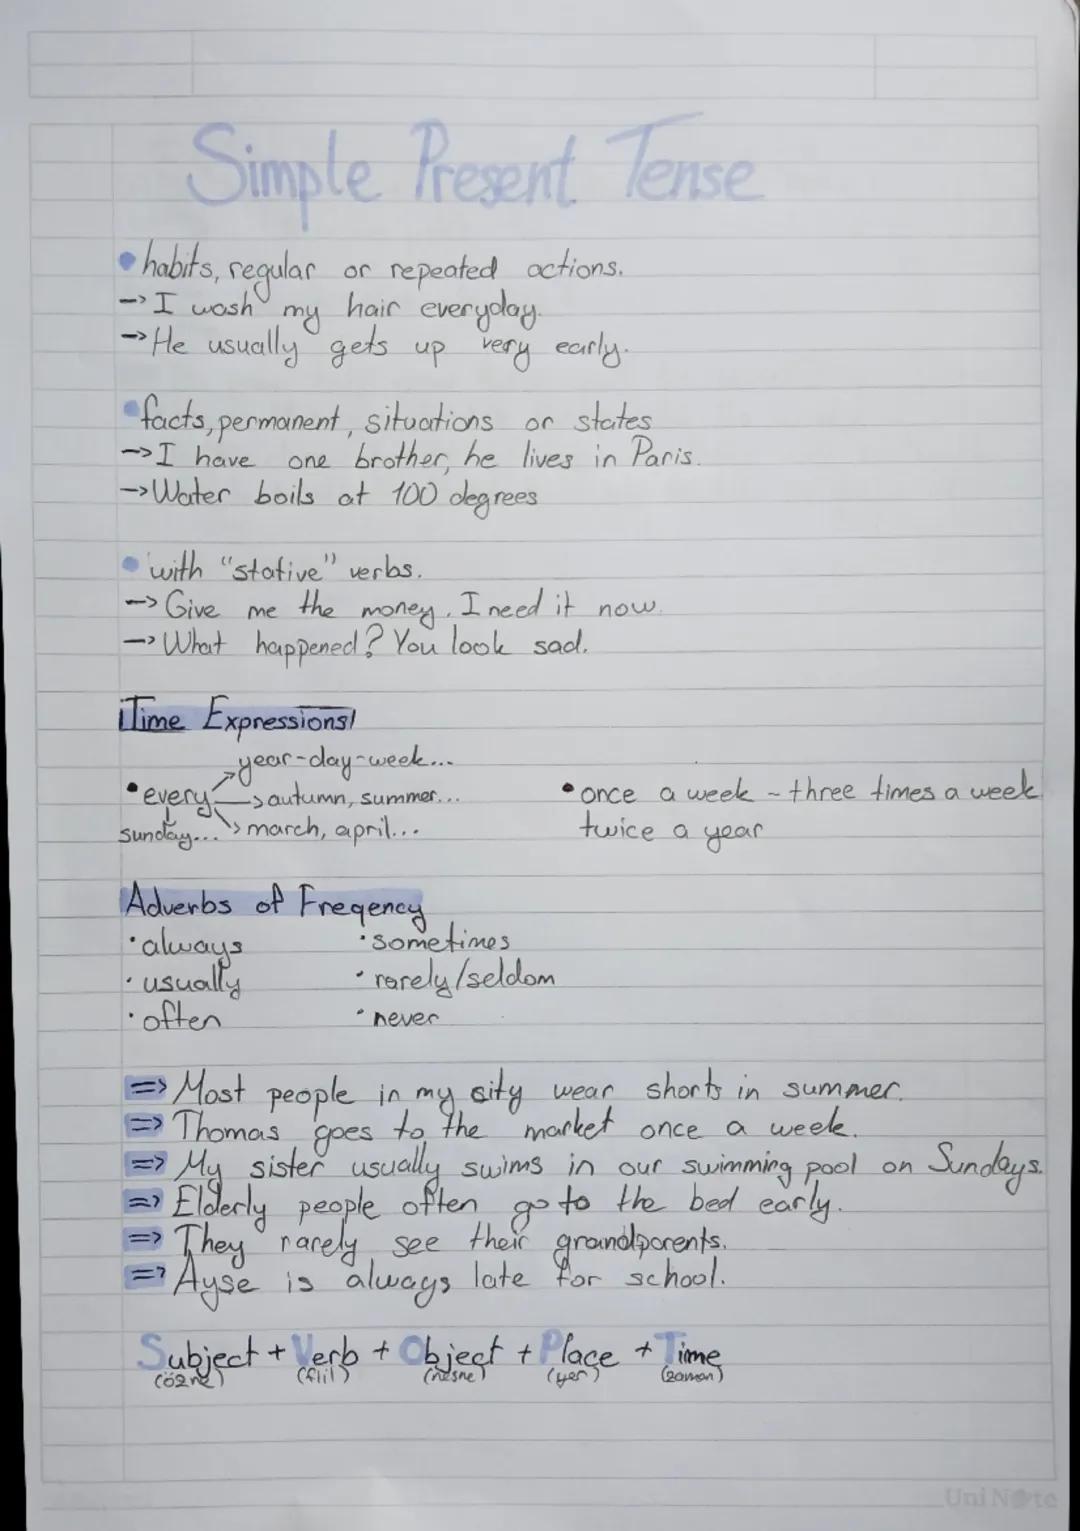 Simple Present Tense
• habits, regular or repeated actions.
-> I wash my hair everyday.
-> He usually gets up very early.
• facts, permanent, situations or states
-> I have one brother, he lives in Paris.
-> Water boils at 100 degrees
• with "stative" verbs.
-> Give me the money. I need it now.
-> What happened? You look sad.
Time Expressions
year-day-week...
• every -> autumn, summer...
sunday... -> march, april...
• once a week - three times a week
twice a year
Adverbs of Freqency
• always • sometimes
• usually • rarely/seldom
• often • never
=> Most people in my city wear shorts in summer.
=> Thomas goes to the market once a week.
=> My sister usually swims in our swimming pool on Sundays.
=> Elderly people often go to the bed early.
=> They rarely see their grandparents.
=> Ayse is always late for school.
Subject + Verb + Object + Place + Time
(özne) (fiil) (nesne) (yer) (zaman)
Uni Note